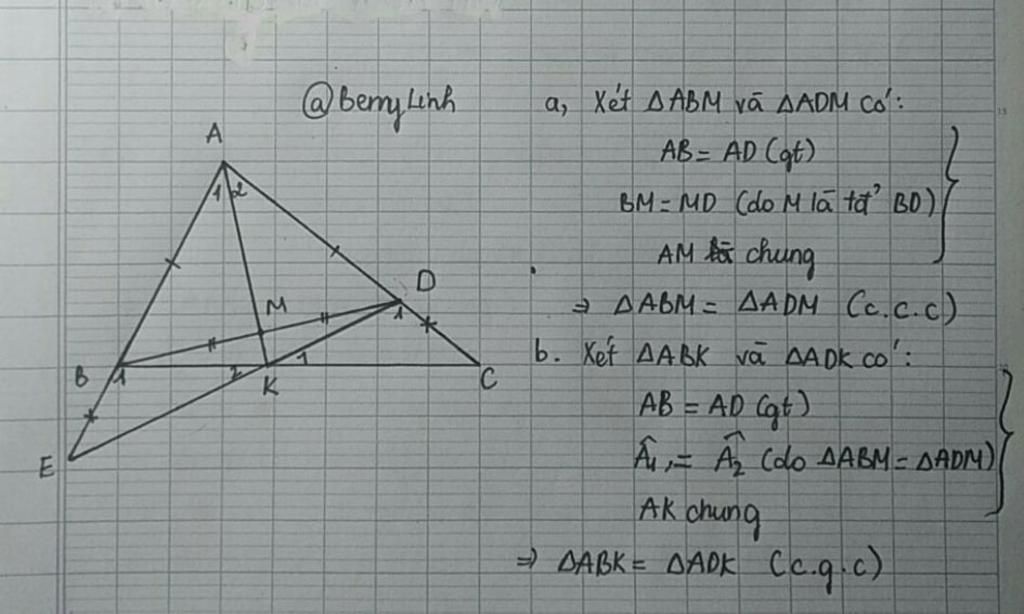 @BerryLinh
A
1 2
M
D
1
B
1
2
K
1
C
E
a, Xét ΔABM và ΔADM có:
AB = AD (gt)
BM = MD (do M là tđ' BD)
AM chung
⇒ ΔABM = ΔADM (c.c.c)
b. Xét ΔABK và ΔADK có:
AB = AD (gt)
Â1 = Â2 (do ΔABM = ΔADM)
AK chung
⇒ ΔABK = ΔADK (c.g.c)